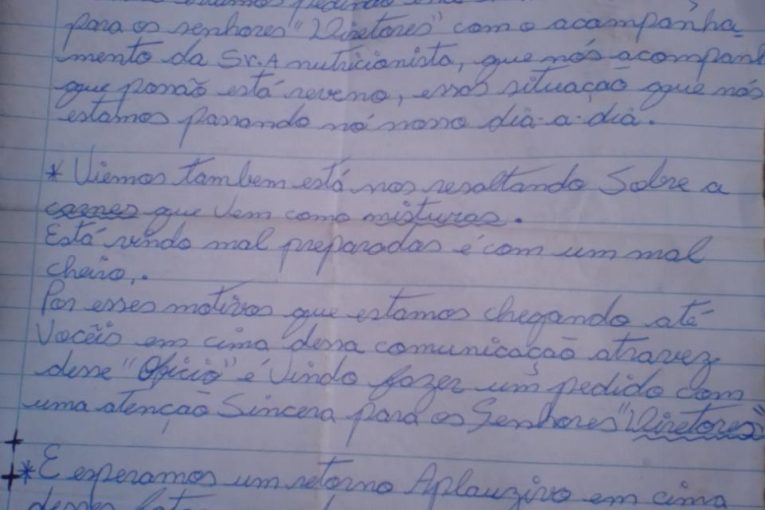 para os senhores "Diretores" com o acompanha-
mento da Sr.A nutricionista, que nós acompanh
que possão está reveno, essas situação que nós
estamos passando nó nosso dia-a-dia.
* Viemos tambem está nos resaltando Sobre a
carnes que Vem como misturas.
Está vindo mal preparadas é com um mal
cheiro,.
Por esses motivos que estamos chegando até
Vocêis em cima dessa comunicação atravez
desse "Oficio" é Vindo fazer um pedido com
uma atenção Sincera para os Senhores "Diretores"
*E esperamos um retorno Aplauzivo em cima